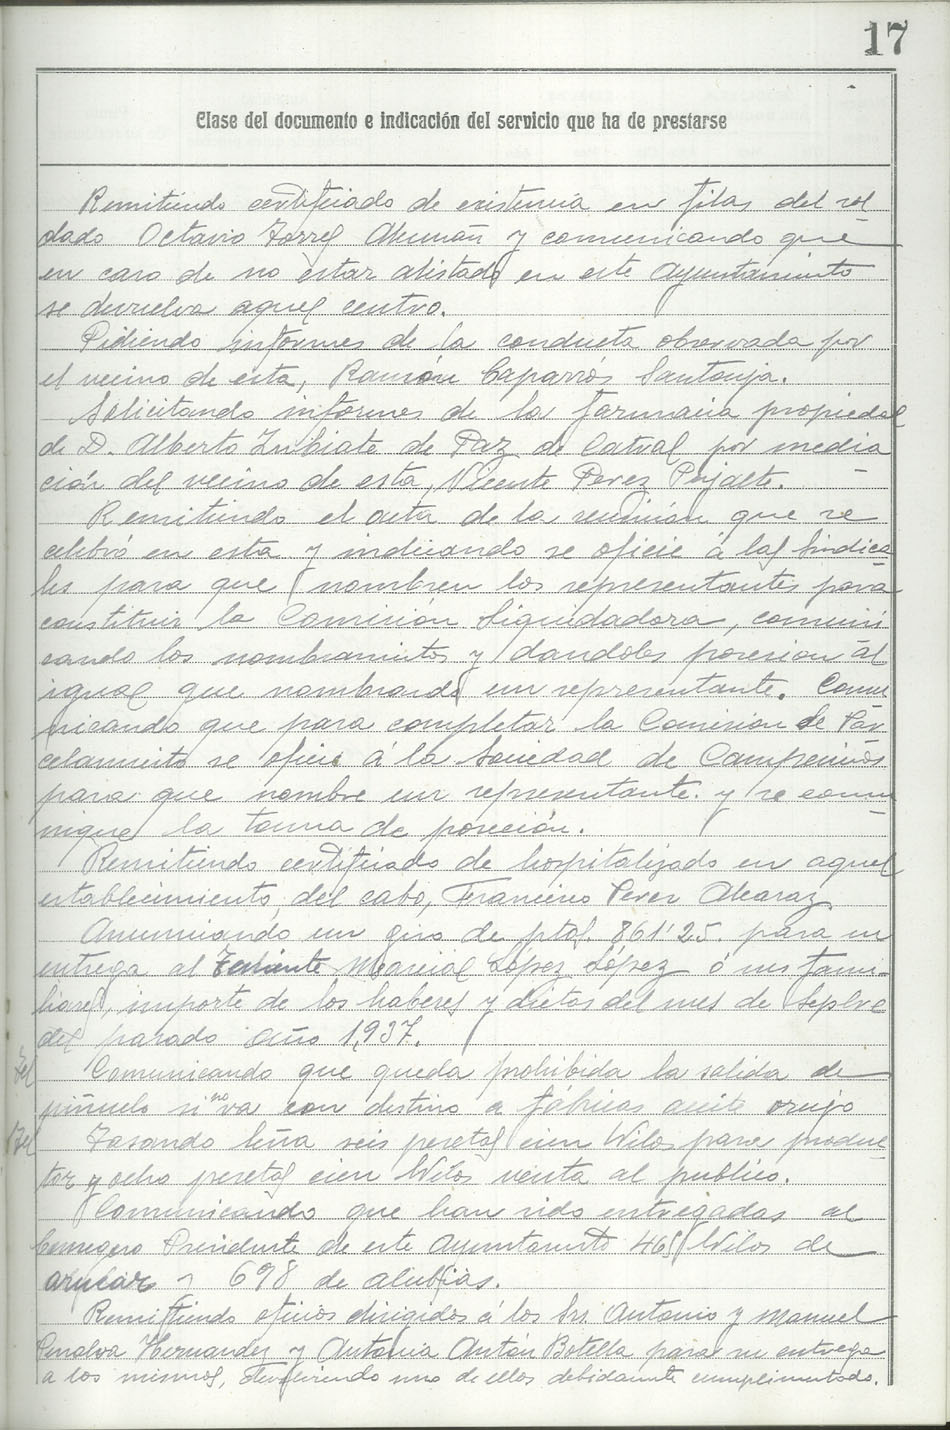 17
Clase del documento e indicación del servicio que ha de prestarse
Remitiendo certificado de existencia en filas del sol
dado Octavio Torres Alemañ y comunicando que
en caso de no estar alistado en este Ayuntamiento
se devuelva aquel centro.
Pidiendo informes de la conducta observada por
el vecino de esta, Ramón Caparrós Santonja.
Solicitando informes de la farmacia propiedad
de D. Alberto de Paz de Catral por media
ción del vecino de esta, Vicente Perez
Remitiendo el acta de la reunión que se
celebró en esta y indicando se oficie á las Sindica
les para que nombren los representantes para
constituir la Comisión Liquidadora, comuni
cando los nombramientos y dandoles posesion al
igual que nombrando un representante. Comu
nicando que para completar la Comision de Par
celamiento se oficie á la Sociedad de Campesinos
para que nombre un representante. y se comu
nique la toma de posesión.
Remitiendo certificado de hospitalizado en aquel
establecimiento, del cabo, Francisco Perez Alcaraz
Anunciando un giro de ptas. 861'25. para su
entrega al Teniente Marcial López López ó sus fami-
liares, importe de los haberes y dietas del mes de Sepbre
del pasado año 1,937.
Tel
Comunicando que queda prohibida la salida de
piñuelo si no va con destino a fábricas aceite orujo
Tel
Tasando leña seis pesetas cien kilos para produc
tor y ocho pesetas cien kilos venta al publico.
Comunicando que han sido entregadas al
Consejero Presidente de este Ayuntamiento 465 kilos de
azucar y 698 de alubias.
Remitiendo oficios dirigidos á los Srs. Antonio y Manuel
Penalva Hernandez y Antonia Antón Botella para su entrega
a los mismos, devolviendo uno de ellos debidamente cumplimentado.